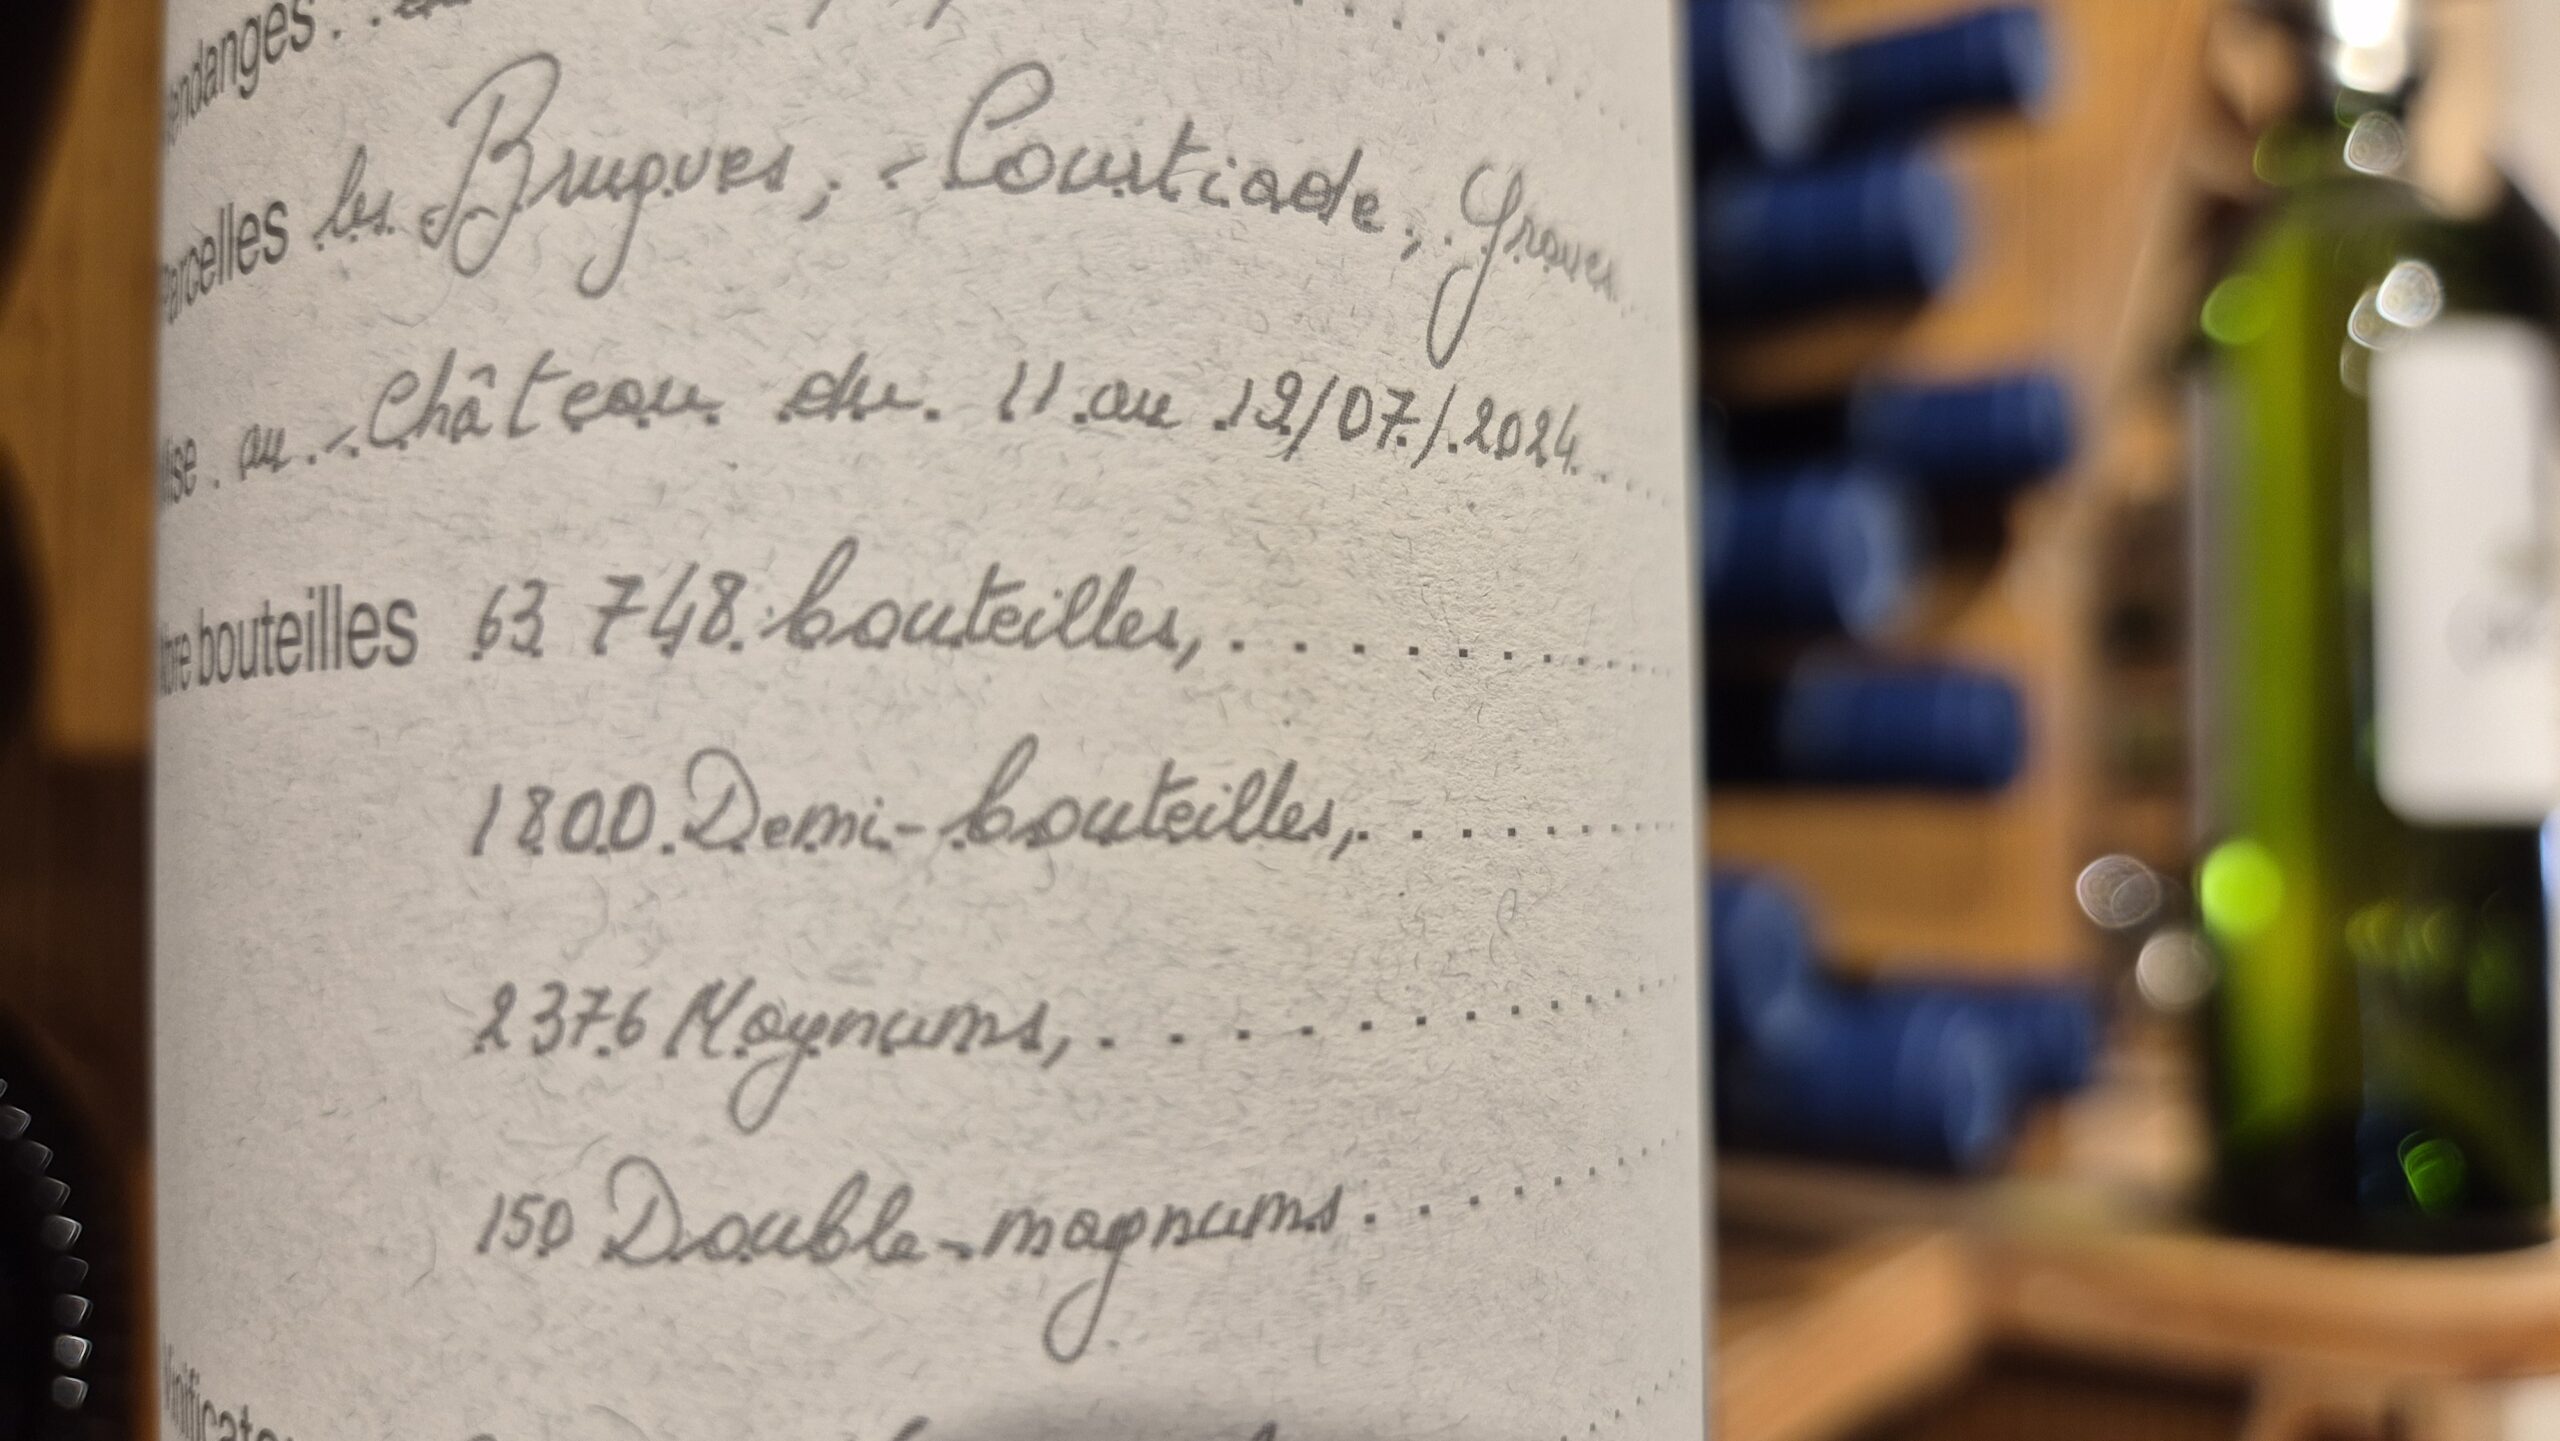 Vendanges
Parcelles les Brugues, Coustiade, Graves
Mise au Château du 11 au 19/07/2024
Nbre bouteilles 63 748 bouteilles,
1800 Demi-bouteilles,
2376 Magnums,
150 Double-magnums